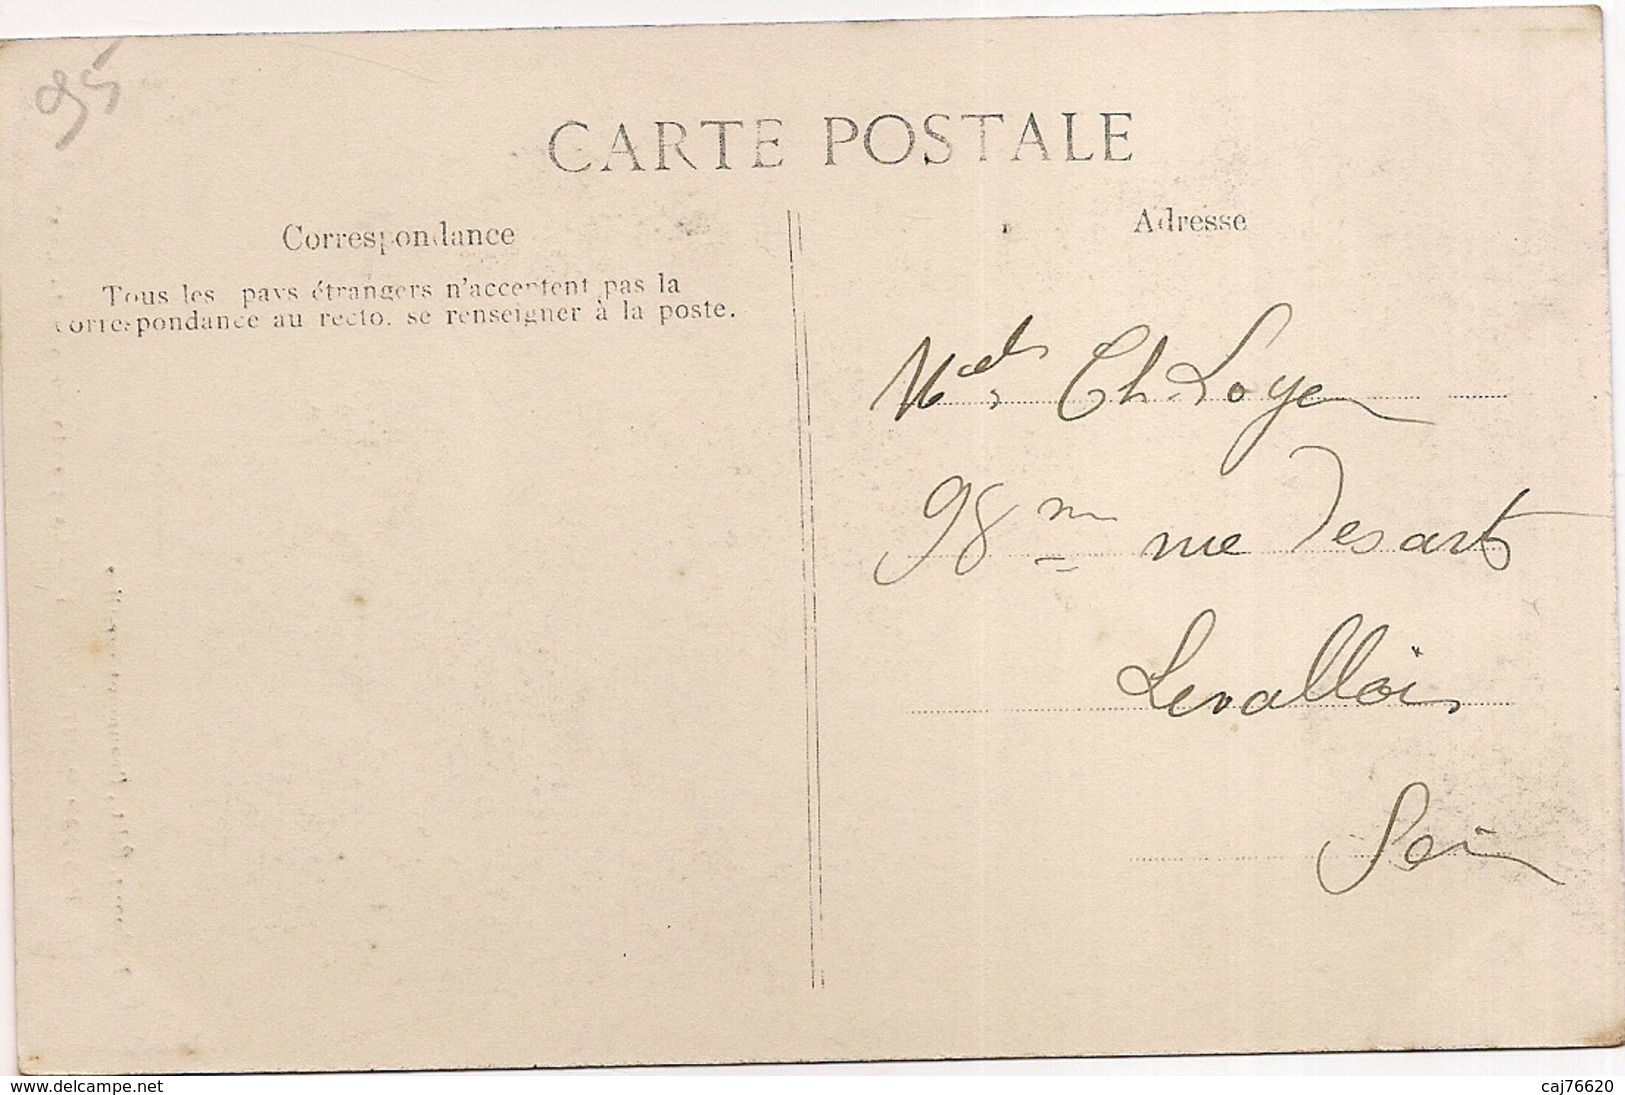 95
CARTE POSTALE
Correspondance
Adresse
Tous les pays étrangers n'acceptent pas la
correspondance au recto. se renseigner à la poste.
Ch. Loyer
98 rue des arts
Levallois
Seine
delcampe.net
caj76620